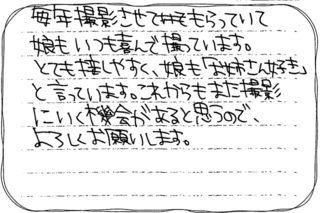 毎年撮影させてもらっていて
娘もいつも喜んで撮っています。
とても接しやすく、娘も「お姉さん好き」
と言っています。これからもまた撮影
にいく機会があると思うので、
よろしくお願いします。